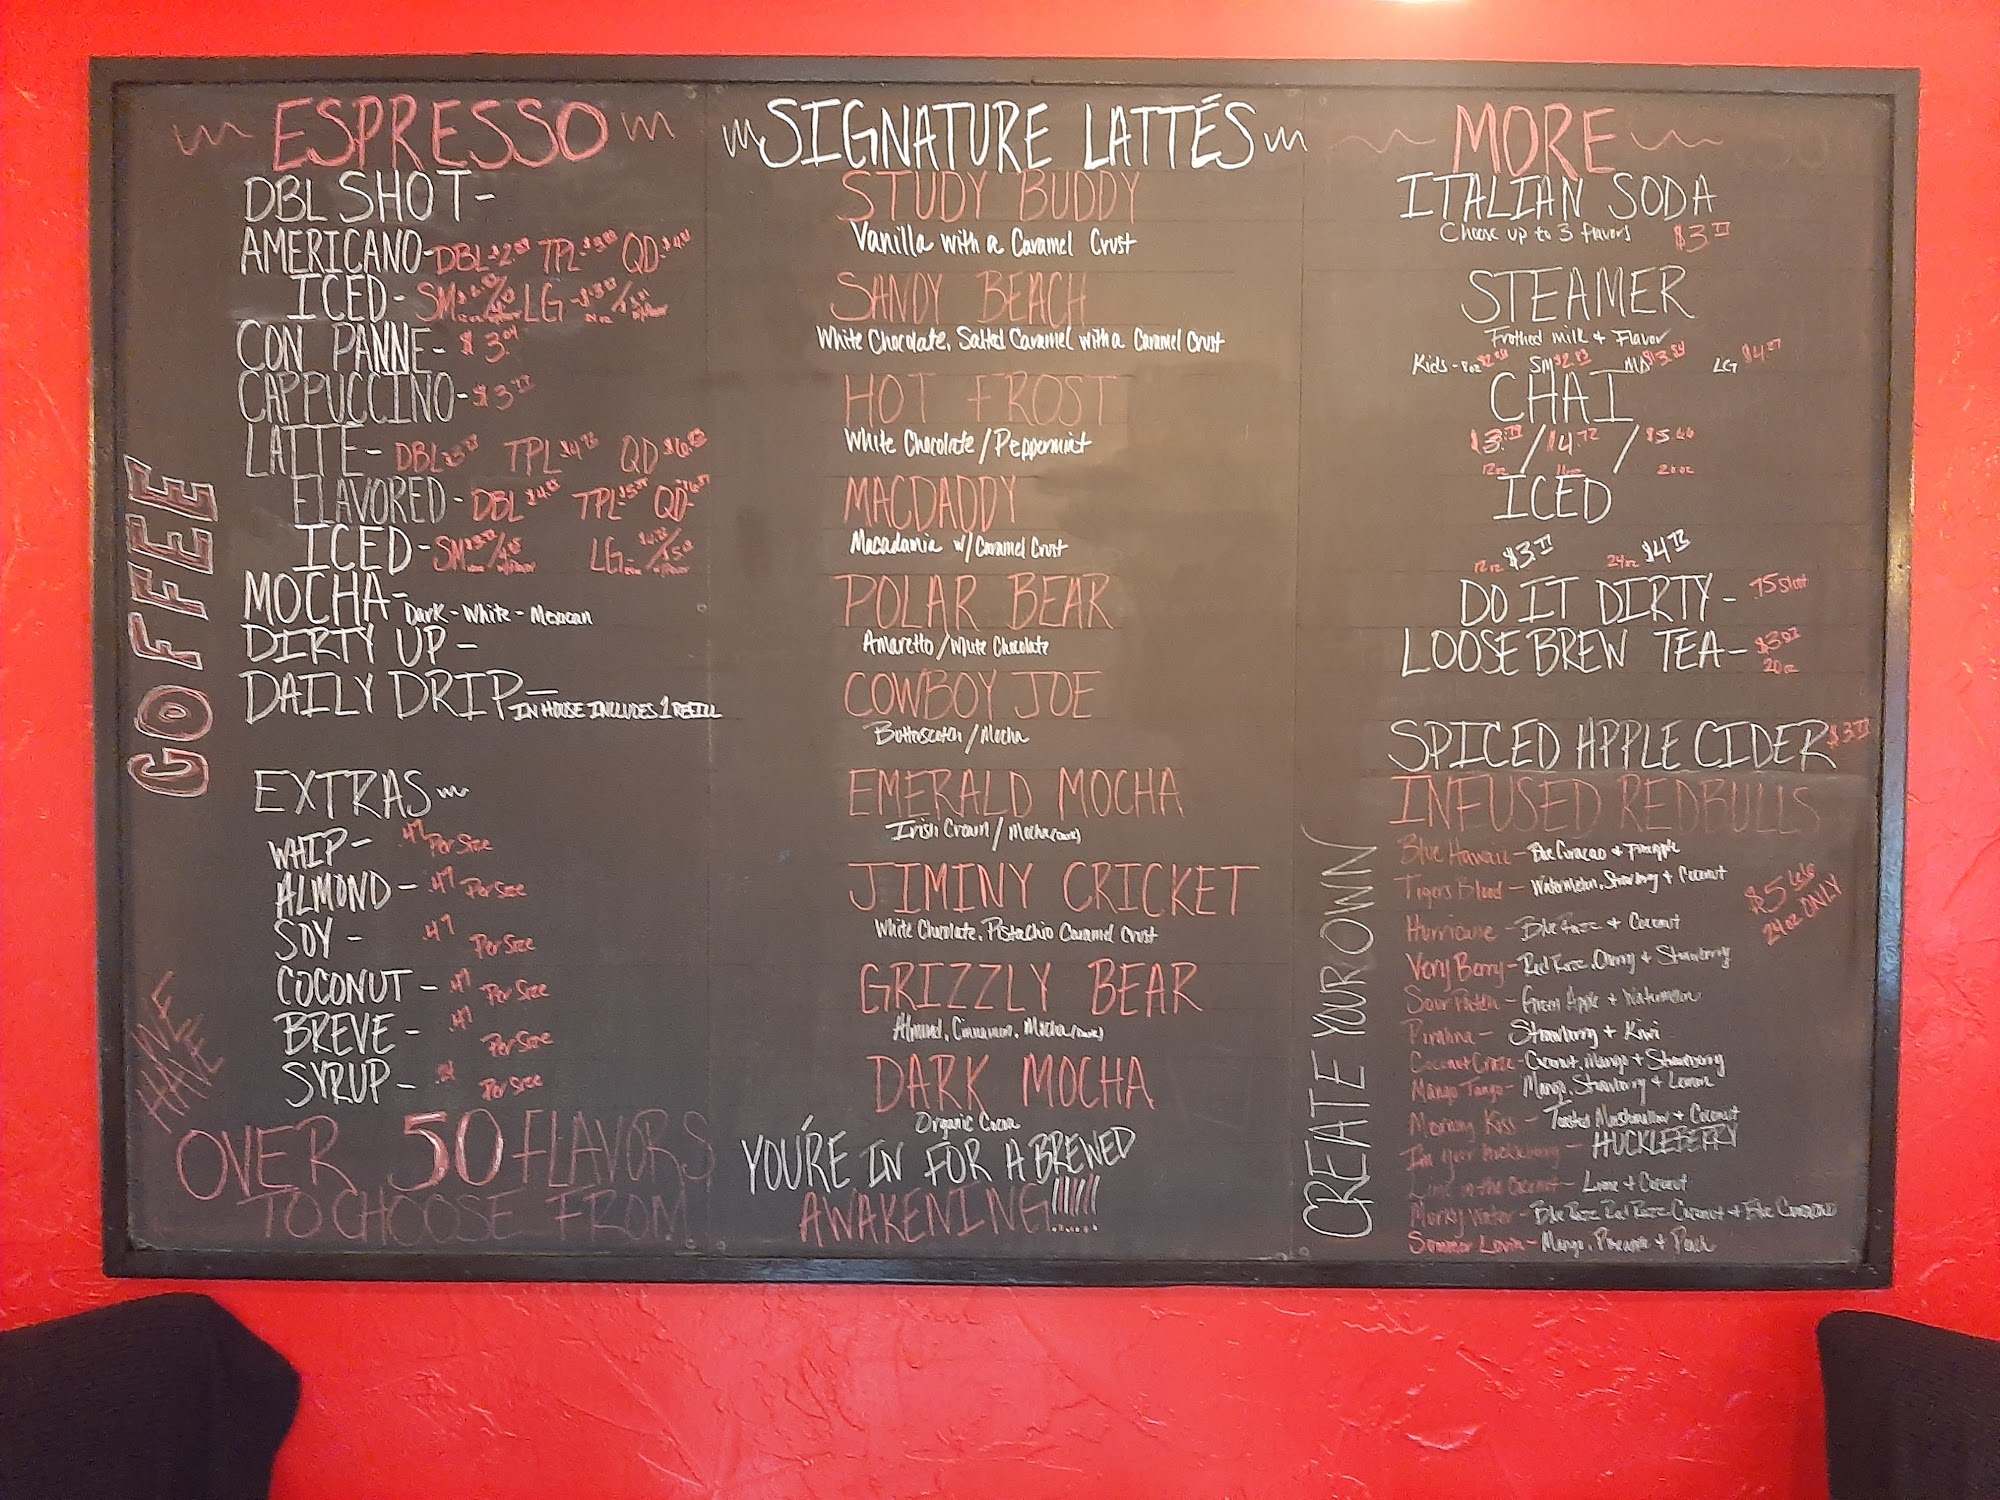 COFFEE
ESPRESSO
DBL SHOT-
AMERICANO- DBL TPL QD
ICED- SM LG
CON PANNE- $3.04
CAPPUCCINO- $3.77
LATTE- DBL TPL QD
FLAVORED- DBL TPL QD
ICED- SM LG
MOCHA- Dark - White - Mexican
DIRTY UP-
DAILY DRIP- IN HOUSE INCLUDES 1 REFILL
EXTRAS
WHIP- .47 Per Size
ALMOND- .47 Per Size
SOY- .47 Per Size
COCONUT- .47 Per Size
BREVE- .47 Per Size
SYRUP- Per Size
WE HAVE
OVER 50 FLAVORS
TO CHOOSE FROM
SIGNATURE LATTÉS
STUDY BUDDY
Vanilla with a Caramel Crust
SANDY BEACH
White Chocolate, Salted Caramel with a Caramel Crust
HOT FROST
White Chocolate / Peppermint
MACDADDY
Macadamia w/ Caramel Crust
POLAR BEAR
Amaretto / White Chocolate
COWBOY JOE
Butterscotch / Mocha
EMERALD MOCHA
Irish Cream / Mocha (Dark)
JIMINY CRICKET
White Chocolate, Pistachio Caramel Crust
GRIZZLY BEAR
Almond, Cinnamon, Mocha (Dark)
DARK MOCHA
Organic Cocoa
YOU'RE IN FOR A BREWED
AWAKENING!!!!!
MORE
ITALIAN SODA
Choose up to 3 flavors $3.77
STEAMER
Frothed milk + Flavor
Kids - 8oz SM $2.83 MD LG $4.27
CHAI
$3.77 / $4.72 / $5.66
12oz 16oz 20oz
ICED
12oz $3.77 24oz $4.73
DO IT DIRTY- .75 shot
LOOSE BREW TEA- $3.02
20oz
SPICED APPLE CIDER $3.77
INFUSED REDBULLS
CREATE YOUR OWN
$5.66
24oz ONLY
Blue Hawaii - Blue Curacao + Pineapple
Tigers Blood - Watermelon, Strawberry + Coconut
Hurricane - Blue Razz + Coconut
Very Berry - Red Razz, Cherry + Strawberry
Sour Patch - Green Apple + Watermelon
Piranha - Strawberry + Kiwi
Coconut Craze - Coconut, Mango + Strawberry
Mango Tango - Mango, Strawberry + Lemon
Morning Kiss - Toasted Marshmallow + Coconut
I'm your Huckleberry - HUCKLEBERRY
Lime in the Coconut - Lime + Coconut
Murky Water - Blue Razz Red Razz Coconut + Blue Curacao
Summer Lovin - Mango, Pineapple + Peach